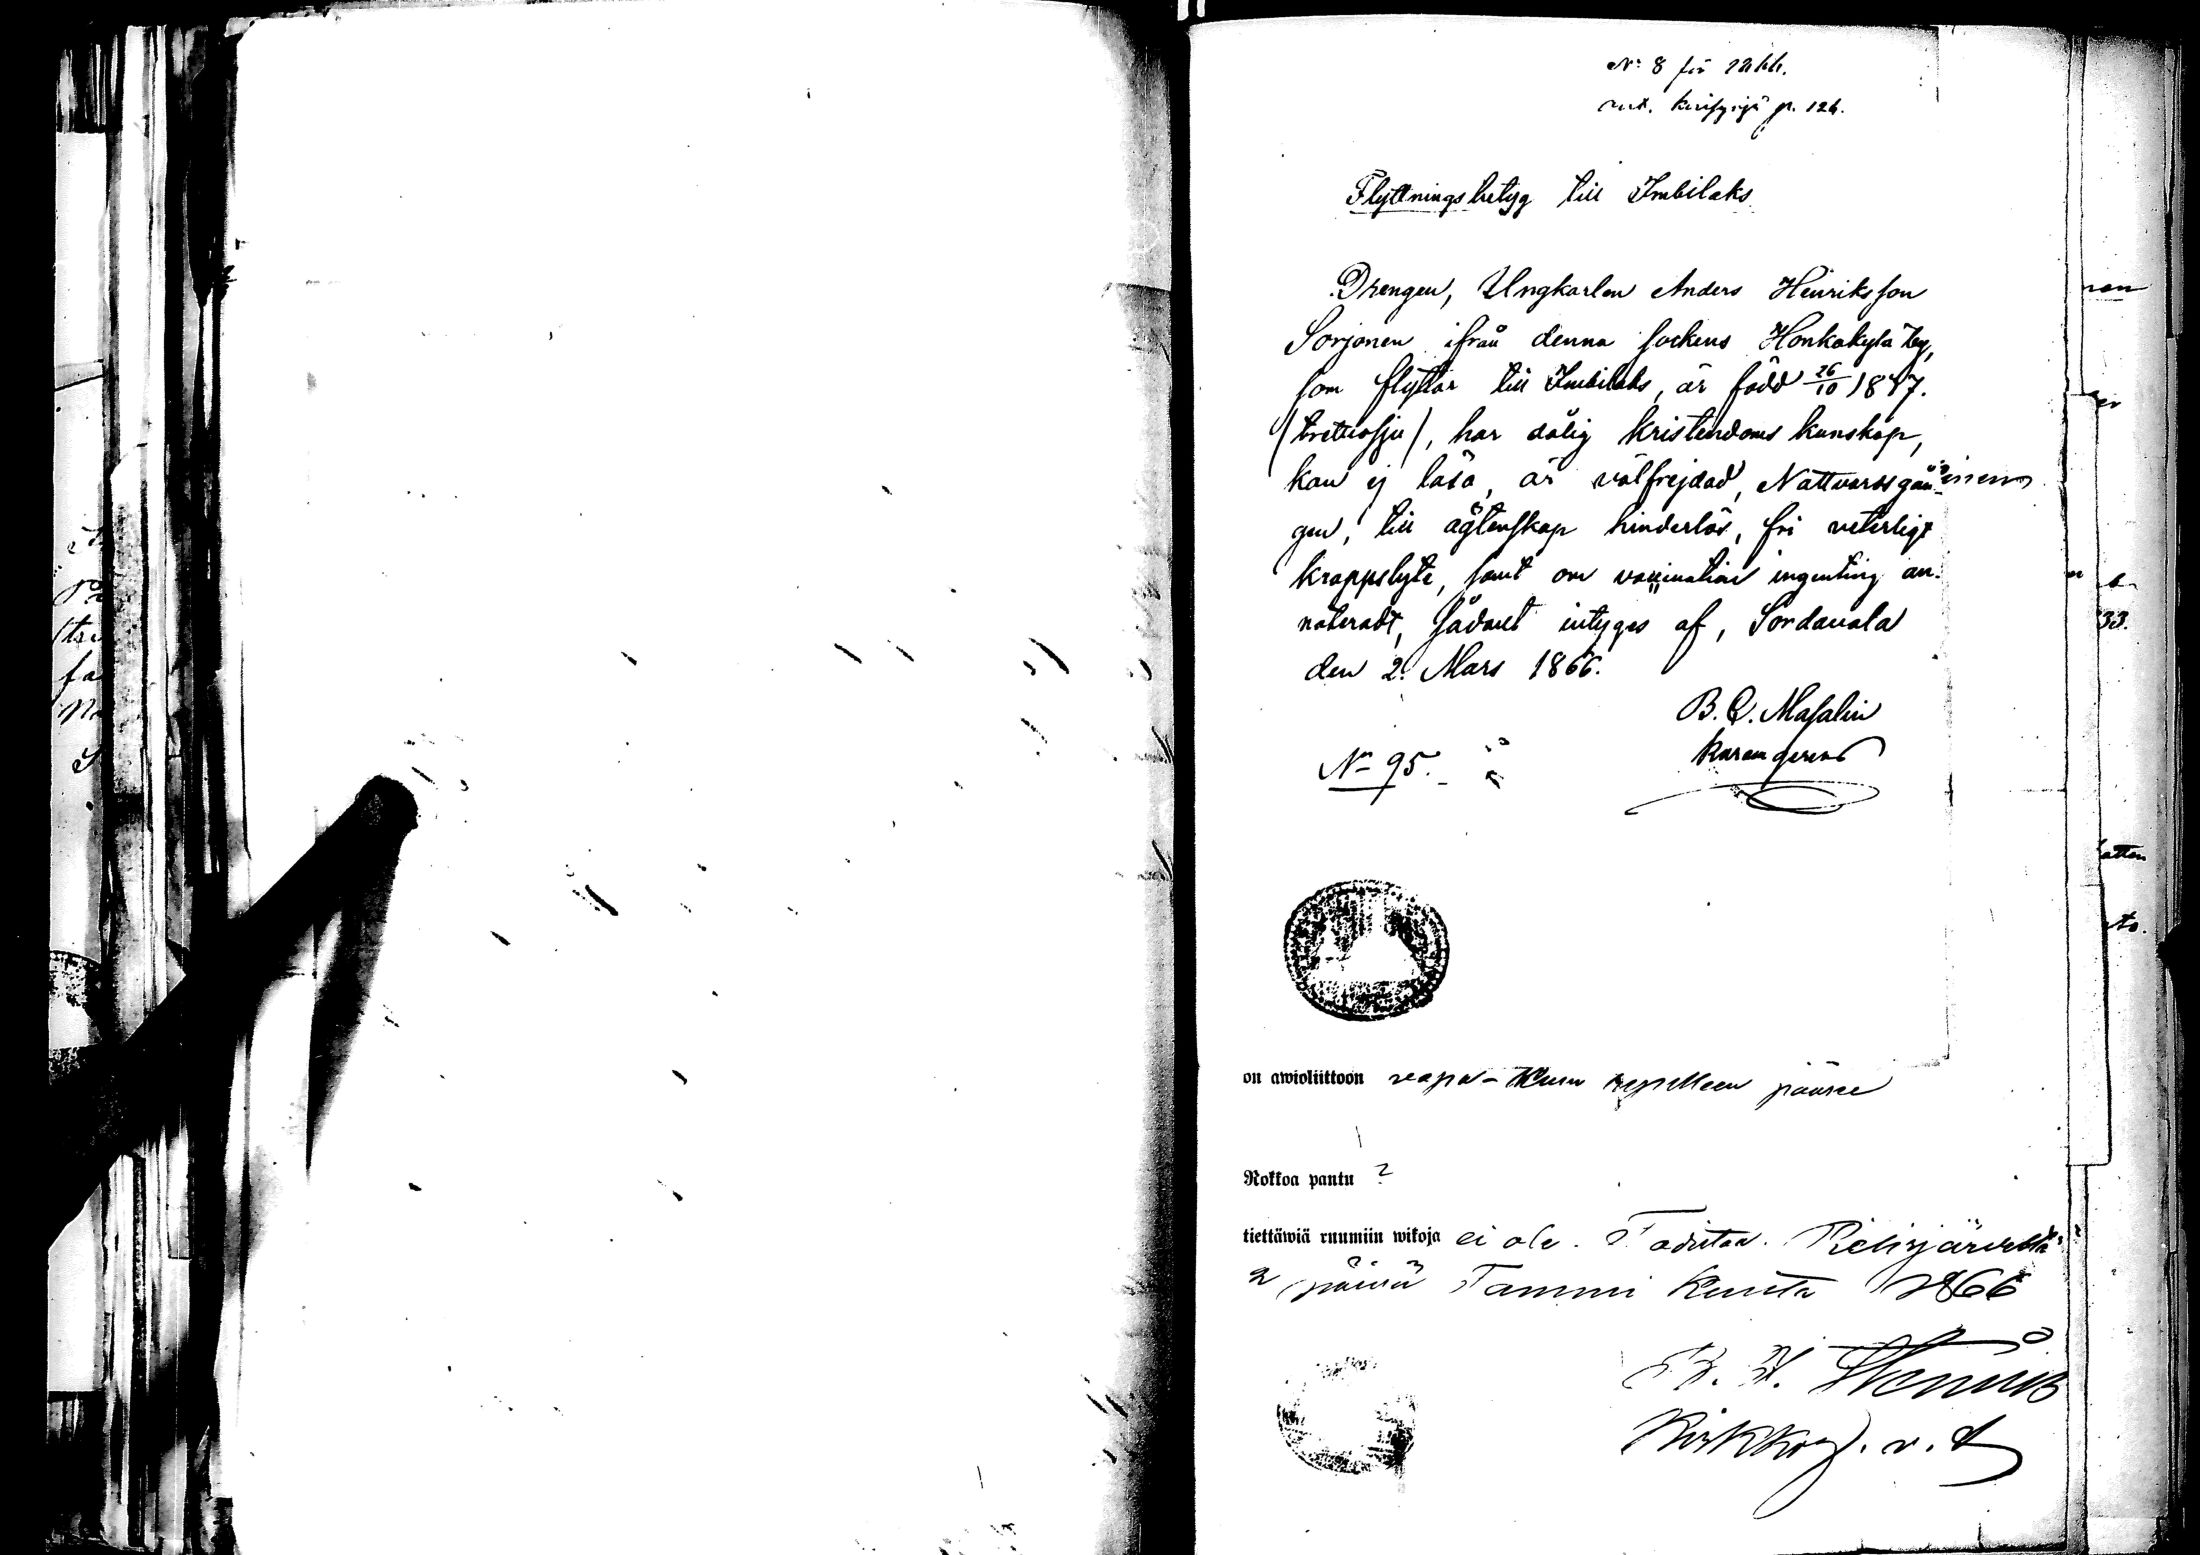 No 8 för 1866.
Flyttningsbetyg till Imbilaks
Drengen, Ungkarlen Anders Henriksson
Sorjonen ifrån denna sockens Honkakylä by,
som flyttar till Imbilaks, är född 26/10 1847.
(brettiosju), har dålig kristendoms kunskap,
kan ej läsa, är välfrejdad, Nattvardsgån-
gen, till ägtenskap hinderlös, fri veterligt
kroppslyte, samt om vaccination ingenting an-
noteradt, sådant intyges af, Sordavala
den 2. Mars 1866.
B. Q. Masalin
No 95.
on awioliittoon vapa-
pääsee
Rokkoa pantu ?
tiettäwiä ruumiin wikoja ei ole. Todistaa.
2 päivä Tammi Kuuta 1866
Kirkkoh. v. t.